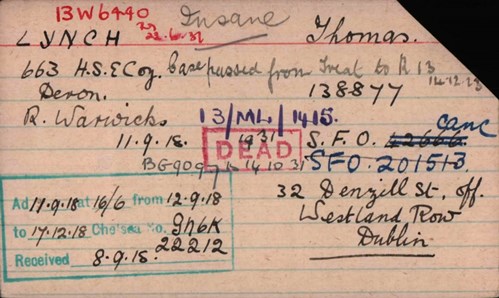 13W6440 Insane
22.6.31
LYNCH Thomas.
663 H.S.E Coy. Case passed from Treat to R 13
14.12.23
Devon. 138877
R. Warwicks 13/ML/1415.
canc
11.9.18. 1931 S.F.O. 42666
DEAD
14.10.31 SFO.201513
32 Denzill St, off.
Westland Row
Dublin.
Ad 17.9.18 at 16/6 from 12.9.18
to 17.12.18 Chelsea No. 9N6K
22212
Received 8.9.18.